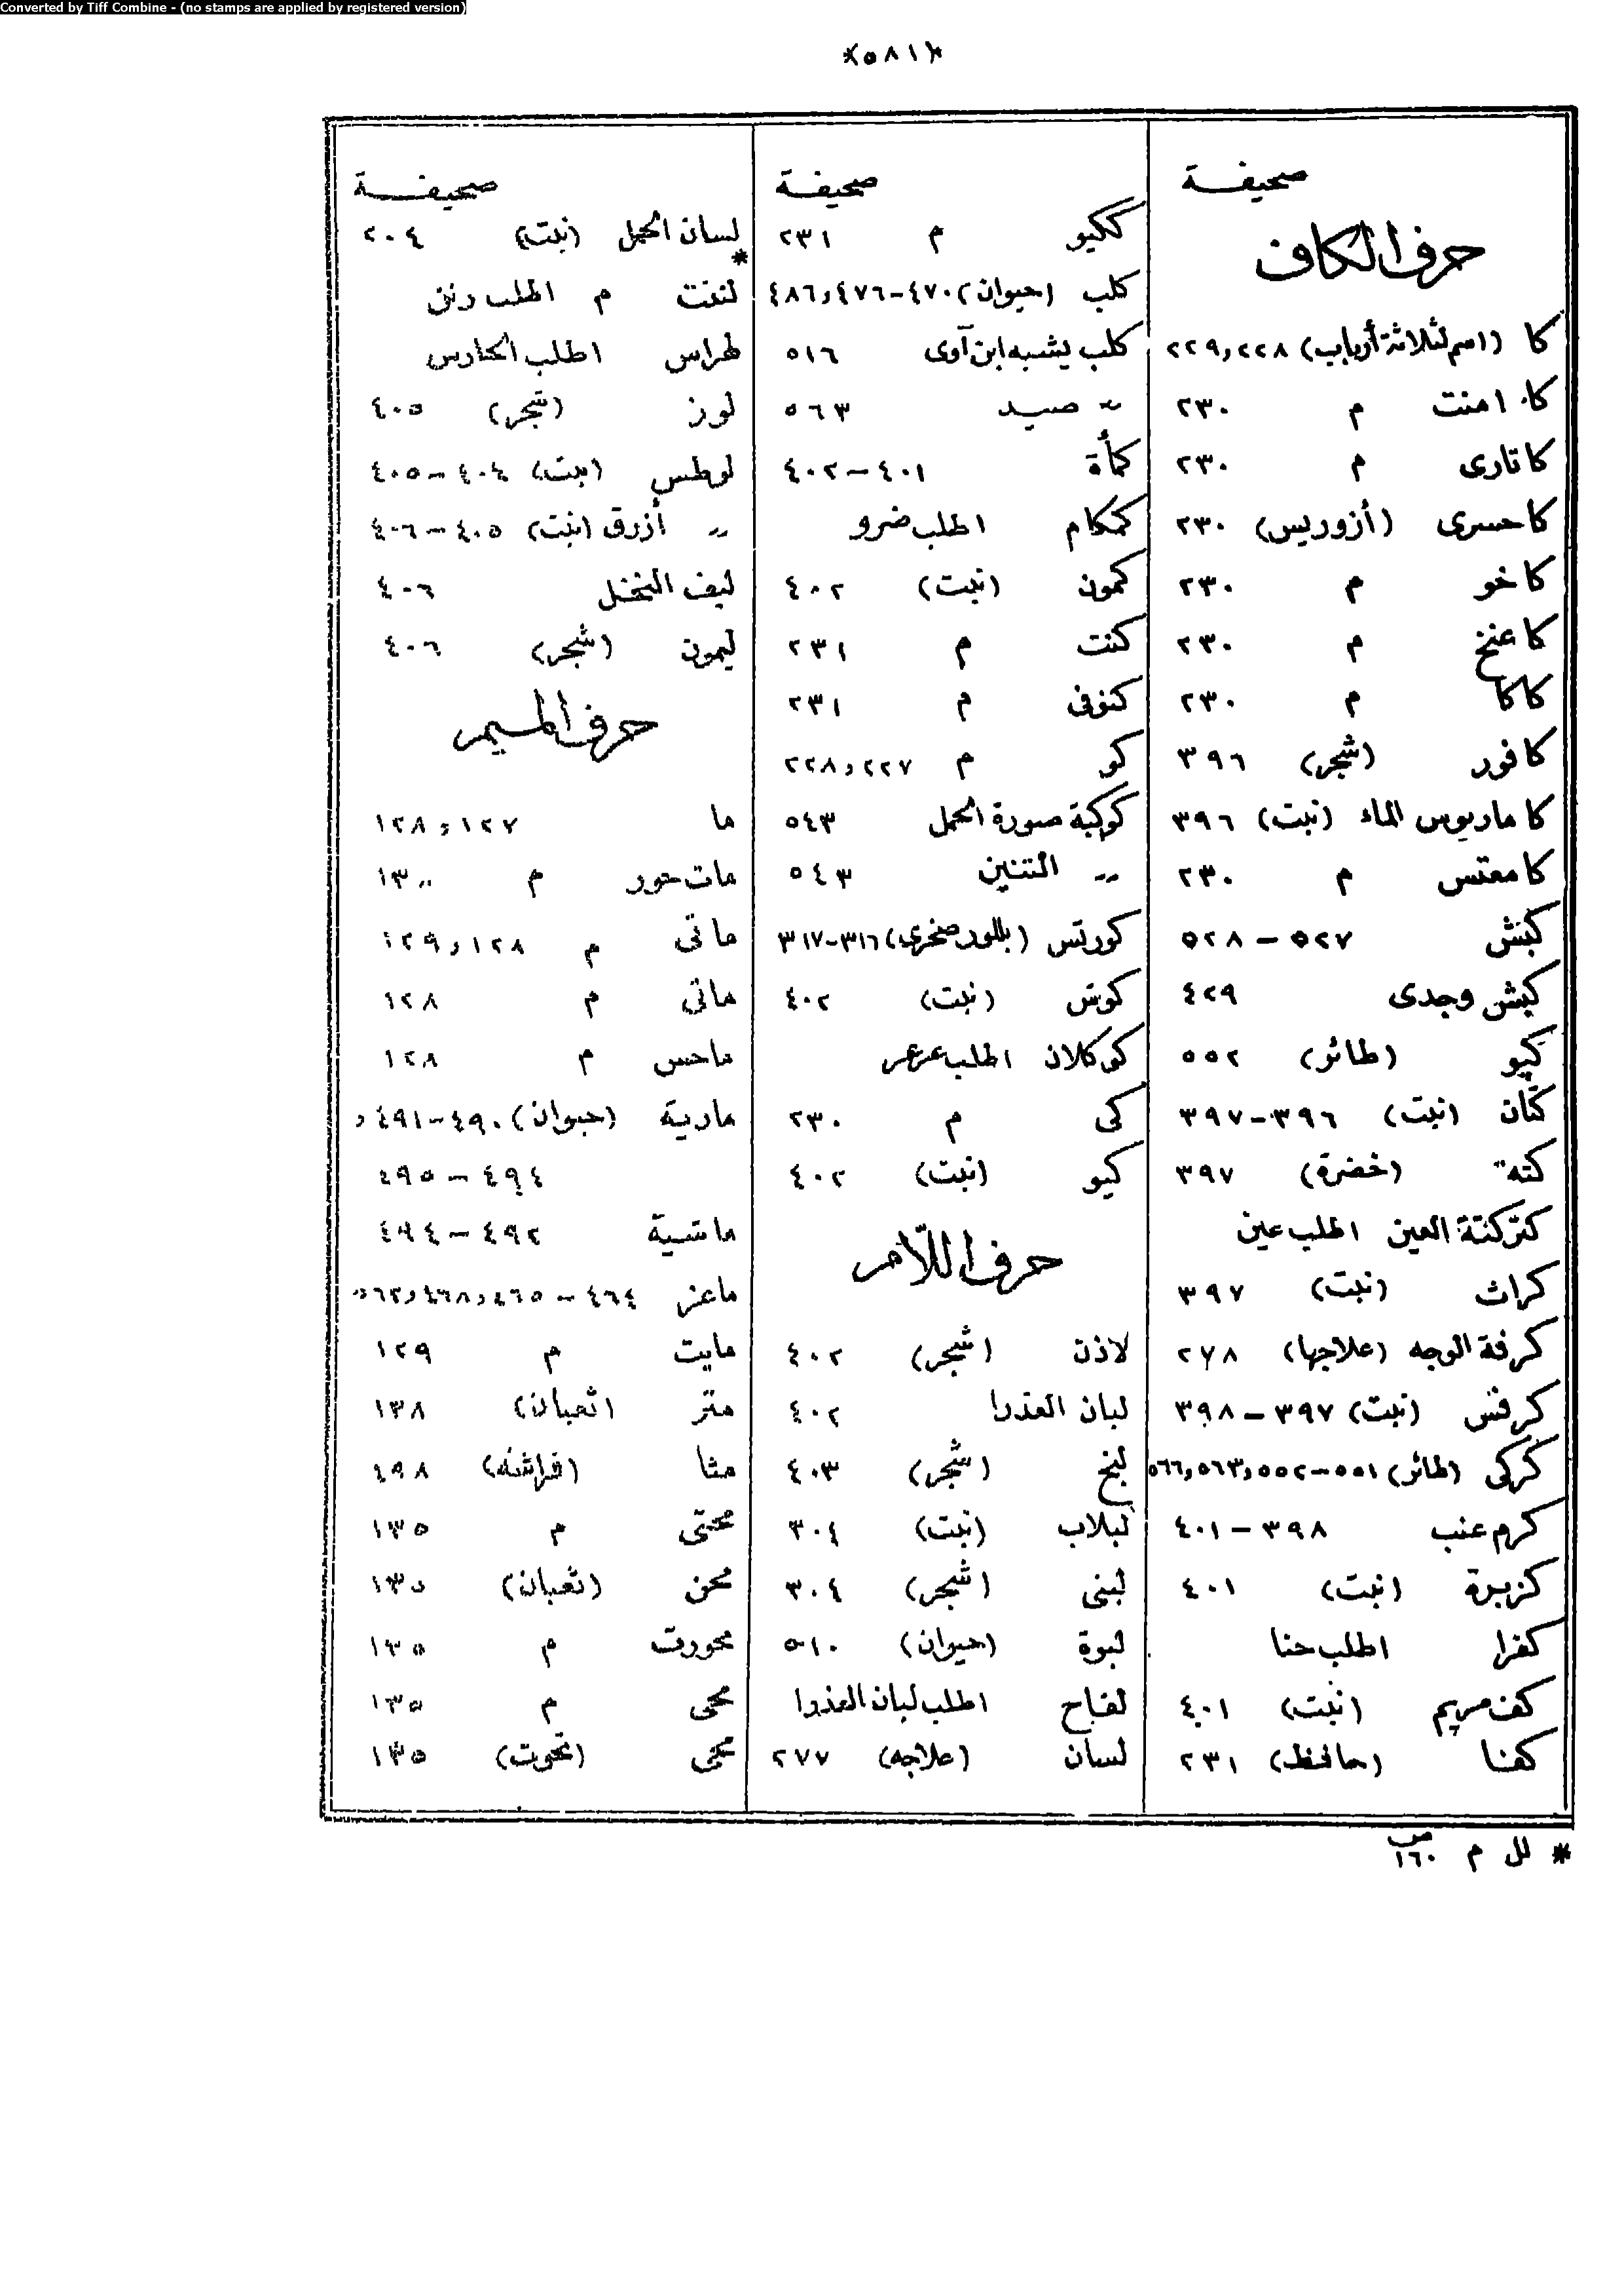 Converted by Tiff Combine - (no stamps are applied by registered version)
(٥٨١)
صحيفة
حرف الكاف
كا (اسم لثلاثة أرباب) ٢٢٨ و٢٢٩
كا امنت م ٢٣٠
كاتارى م ٢٣٠
كاحسرى (أزوريس) ٢٣٠
كاخو م ٢٣٠
كاعنخ م ٢٣٠
كاكا م ٢٣٠
كافور (شجر) ٣٩٦
كاماريوس الماء (نبت) ٣٩٦
كامعتس م ٢٣٠
كبش ٥٢٧ – ٥٢٨
كبش وجدى ٤٢٩
كپو (طائر) ٥٥٢
كتان (نبت) ٣٩٦-٣٩٧
كته (خضرة) ٣٩٧
كتركتة العين اطلب عين
كراث (نبت) ٣٩٧
كرفة الوجه (علاجها) ٢٧٨
كرفس (نبت) ٣٩٧ – ٣٩٨
كركى (طائر) ٥٥١-٥٥٢ و٥٦٣ و٥٦٦
كرم عنب ٣٩٨ – ٤٠١
كزبرة (نبت) ٤٠١
كفرا اطلب حنا
كف مريم (نبت) ٤٠١
كفنا (حافظ) ٢٣١
صحيفة
ككيو م ٢٣١
كلب (حيوان) ٤٧٠-٤٧٦ و٤٨٦
كلب يشبه ابن آوى ٥١٦
〃 صيد ٥٦٣
كمأة ٤٠١ – ٤٠٢
كمكام اطلب ضرو
كمون (نبت) ٤٠٢
كنت م ٢٣١
كنوفى م ٢٣١
كو م ٢٢٧ و٢٢٨
كوكبة صورة الحمل ٥٤٣
〃 التنين ٥٤٣
كورتس (بللور صخرى) ٣١٦-٣١٧
كوش (نبت) ٤٠٢
كوكلان اطلب عرعر
كى م ٢٣٠
كيو (نبت) ٤٠٢
حرف اللام
لاذن (شجر) ٤٠٢
لبان العذرا ٤٠٢
لبخ (شجر) ٤٠٣
لبلاب (نبت) ٣٠٤
لبنى (شجر) ٣٠٤
لبوة (حيوان) ٥١٠
لفاح اطلب لبان العذرا
لسان (علاجه) ٢٧٧
صحيفة
لسان الحمل (نبت) ٢٠٤
*
لنفت م اطلب رنن
لهراس اطلب الحارس
لوز (شجر) ٤٠٥
لوطس (نبت) ٤٠٤ – ٤٠٥
〃 أزرق (نبت) ٤٠٥ – ٤٠٦
ليف النخل ٤٠٦
ليمون (شجر) ٤٠٦
حرف الميم
ما ١٢٧ و١٢٨
مات حور م ١٣٠
ماتى م ١٢٨ و١٢٩
ماتى م ١٢٨
ماحس م ١٢٨
مارية (حيوان) ٤٩٠-٤٩١ و
٤٩٤ – ٤٩٥
ماشية ٤٩٢ – ٤٩٤
ماعز ٤٦٤ – ٤٦٥ و٤٦٨ و
مايت م ١٢٩
متر (ثعبان) ١٣٨
مثا (فراشه) ٤٩٨
محتى م ١٣٥
محن (ثعبان) ١٣٥
محورت م ١٣٥
محى م ١٣٥
مخى (تحوت) ١٣٥
* لل م ص ١٦٠